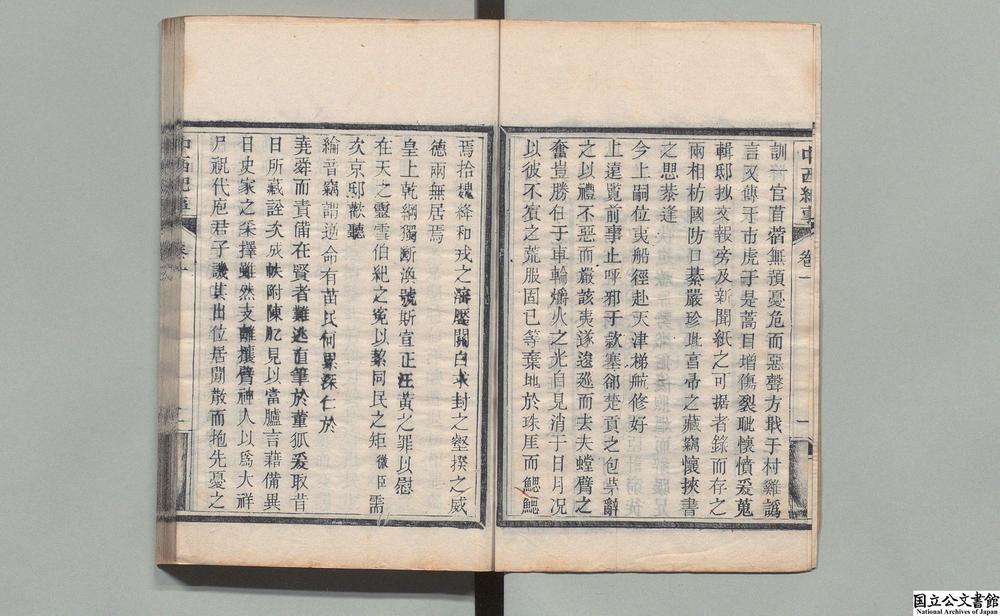 中西紀事 卷一 一
訓術官首蓿無預憂危而惡聲方戢于村雞譌
言又傳于市虎于是蒿目增傷裂眦懷憤爰蒐
輯邸抄文報旁及新聞紙之可據者錄而存之
兩相枋國防口綦嚴珍此富帚之藏竊懷挾書
之思恭逢
今上嗣位夷船徑赴天津梯航修好
上遠覽前事止呼邪于款塞卻楚貢之包茅辭
之以禮不惡而嚴該夷遂逡廵而去夫螳臂之
奮豈勝任于車輪爝火之光自見消于日月況
以彼不賓之荒服固已等棄地於珠厓而鰓鰓
焉拾魏絳和戎之瀋壓關白求封之壑撰之威
德兩無居焉
皇上乾綱獨斷渙號斯宣正汪黃之罪以慰
在天之靈雪伯紀之寃以絜同民之矩微臣需
次京邸歡聽
綸音竊謂逆命有苗民何累深仁於
堯舜而責備在賢者難逃直筆於董狐爰取昔
日所藏詮次成帙附陳肊見以當臚言藉備異
日史家之采擇雖然支離攘臂神人以爲大祥
尸祝代庖君子譏其出位居閒散而抱先憂之
中西紀事
國立公文書館
National Archives of Japan